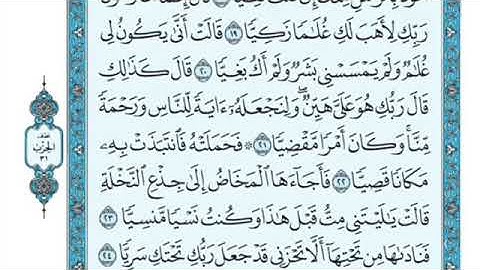 رَبِّكِ لِأَهَبَ لَكِ غُلَٰمًا زَكِيًّا ١٩ قَالَتْ أَنَّىٰ يَكُونُ لِي
غُلَٰمٌ وَلَمْ يَمْسَسْنِي بَشَرٌ وَلَمْ أَكُ بَغِيًّا ٢٠ قَالَ كَذَٰلِكِ
قَالَ رَبُّكِ هُوَ عَلَيَّ هَيِّنٌ ۖ وَلِنَجْعَلَهُۥٓ ءَايَةً لِّلنَّاسِ وَرَحْمَةً
مِّنَّا ۚ وَكَانَ أَمْرًا مَّقْضِيًّا ٢١ ۞ فَحَمَلَتْهُ فَٱنتَبَذَتْ بِهِۦ
مَكَانًا قَصِيًّا ٢٢ فَأَجَآءَهَا ٱلْمَخَاضُ إِلَىٰ جِذْعِ ٱلنَّخْلَةِ
قَالَتْ يَٰلَيْتَنِي مِتُّ قَبْلَ هَٰذَا وَكُنتُ نَسْيًا مَّنسِيًّا ٢٣
فَنَادَىٰهَا مِن تَحْتِهَآ أَلَّا تَحْزَنِي قَدْ جَعَلَ رَبُّكِ تَحْتَكِ سَرِيًّا ٢٤
نصف
الحزب
٣١